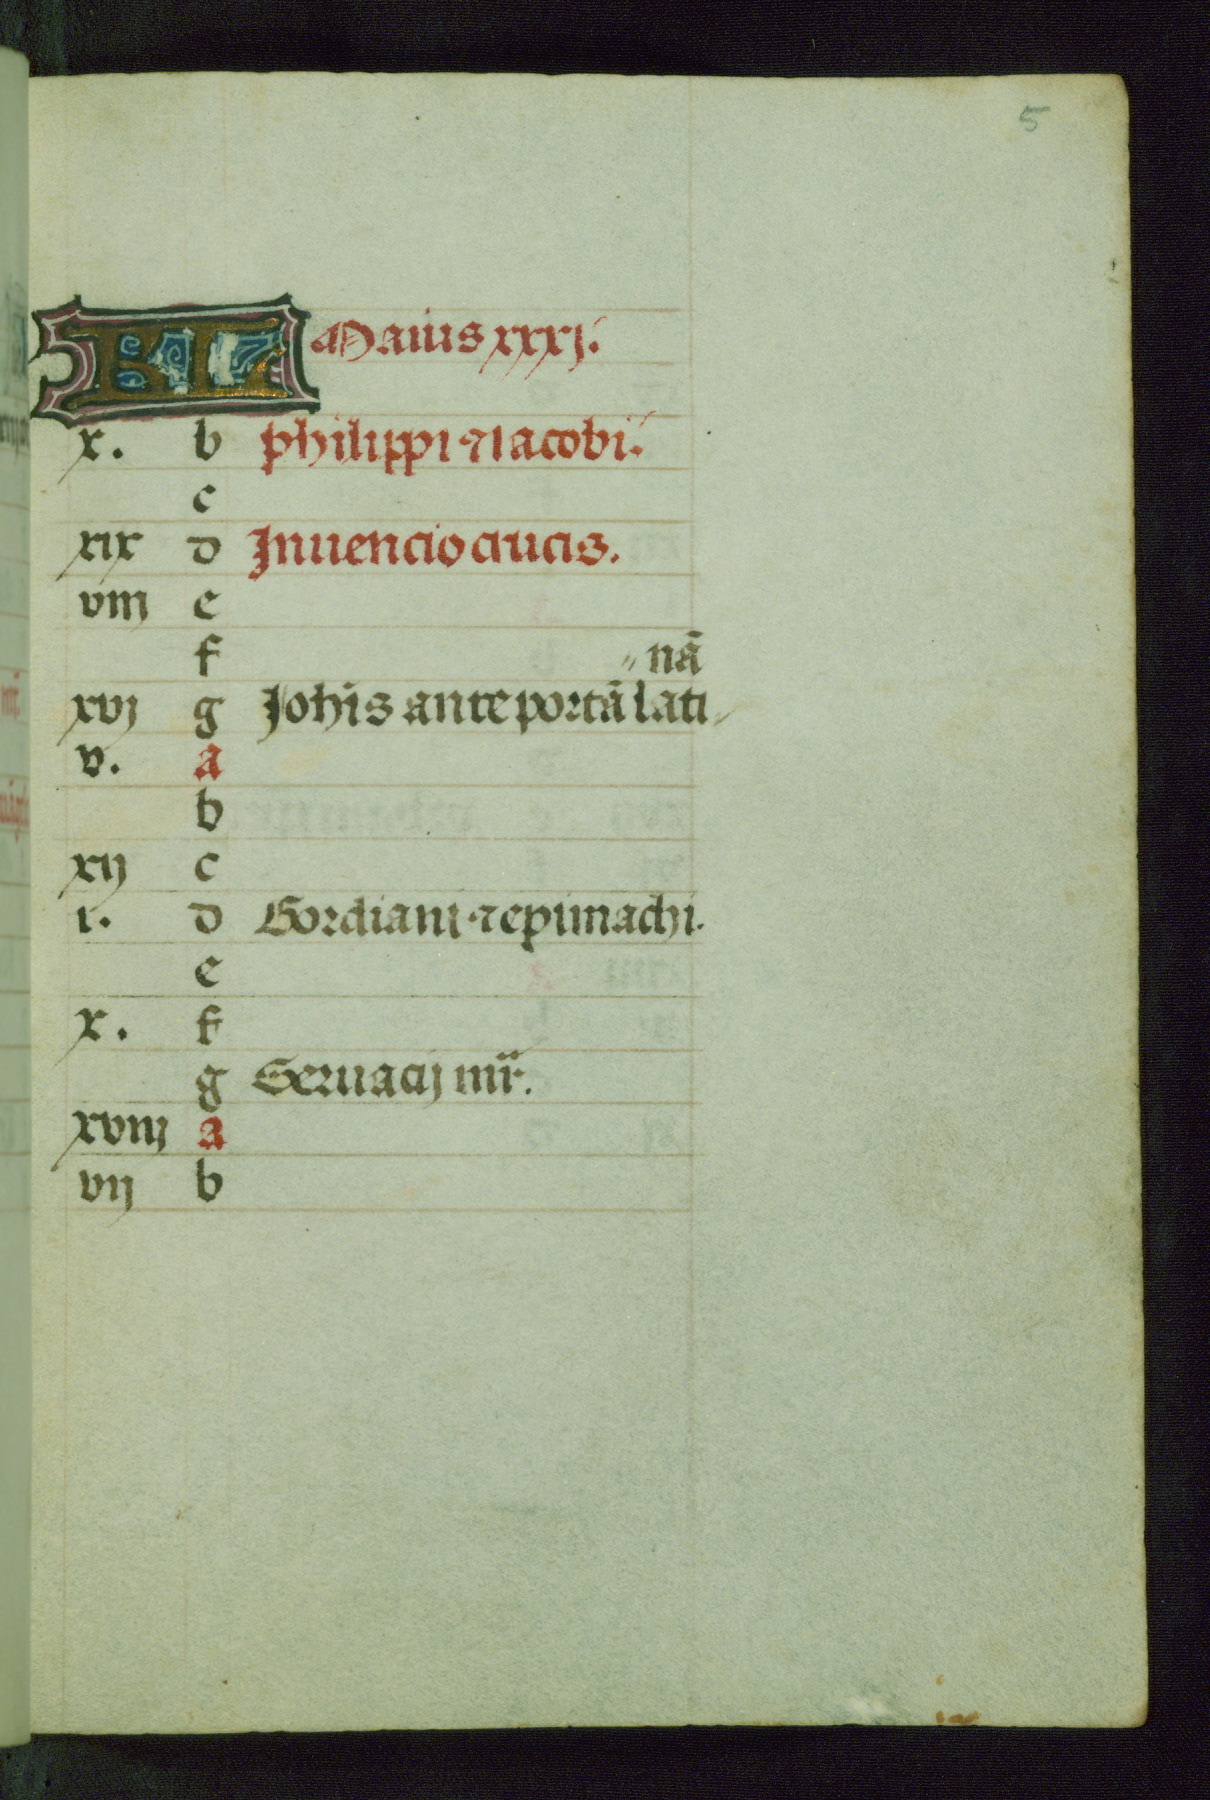 5
KL Maius xxxj.
x. b Philippi ⁊ Iacobi.
c
xix d Inuencio crucis.
viij e
f nā
xvj g Johīs ante portā lati
v. a
b
xij c
i. d Gordiani ⁊ epimachi.
e
x. f
g Seruacij mr̄.
xviij a
vij b